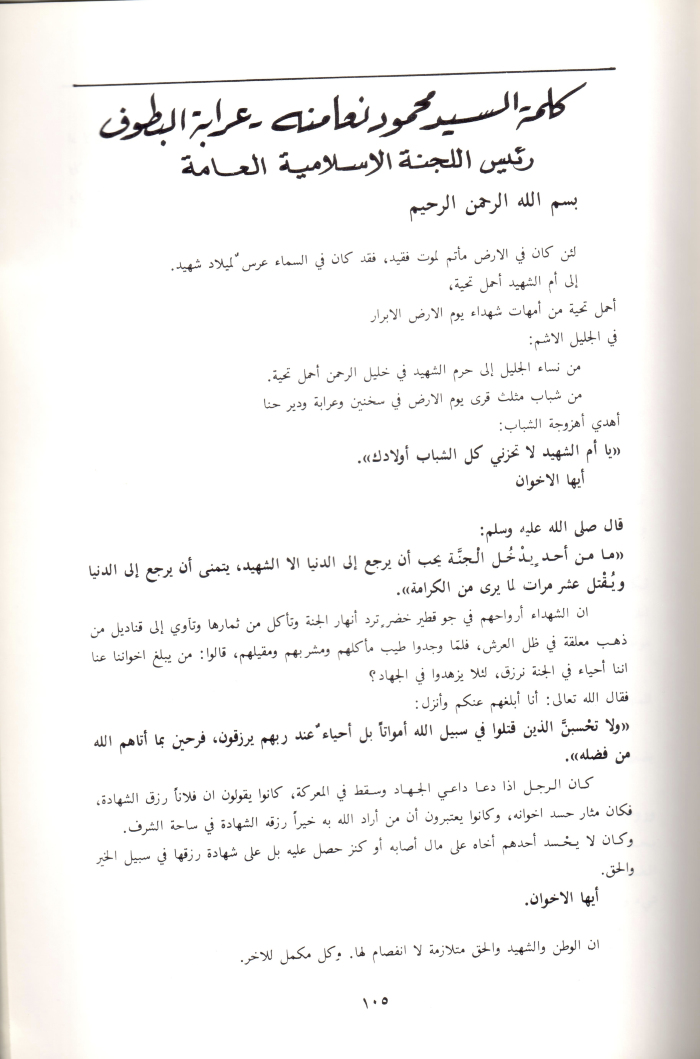 كلمة السيد محمود نعامنه - عرابة البطوف
رئيس اللجنة الاسلامية العامة
بسم الله الرحمن الرحيم
لئن كان في الارض مأتم لموت فقيد، فقد كان في السماء عرسٌ لميلاد شهيد.
إلى أم الشهيد أحمل تحية،
أحمل تحية من أمهات شهداء يوم الارض الابرار
في الجليل الاشم:
من نساء الجليل إلى حرم الشهيد في خليل الرحمن أحمل تحية.
من شباب مثلث قرى يوم الارض في سخنين وعرابة ودير حنا
أهدي أهزوجة الشباب:
«يا أم الشهيد لا تحزني كل الشباب أولادك».
أيها الاخوان
قال صلى الله عليه وسلم:
«ما من أحدٍ يدْخُل الْجنَّة يحب أن يرجع إلى الدنيا الا الشهيد، يتمنى أن يرجع إلى الدنيا
ويُقْتل عشر مرات لما يرى من الكرامة».
ان الشهداء أرواحهم في جو قطير خضرٍ ترد أنهار الجنة وتأكل من ثمارها وتأوي إلى قناديل من
ذهب معلقة في ظل العرش، فلمّا وجدوا طيب مأكلهم ومشربهم ومقيلهم، قالوا: من يبلغ اخواننا عنا
اننا أحياء في الجنة نرزق، لئلا يزهدوا في الجهاد؟
فقال الله تعالى: أنا أبلغهم عنكم وأنزل:
«ولا تحْسبنَّ الذين قتلوا في سبيل الله أمواتاً بل أحياءٌ عند ربهم يرزقون، فرحين بما أتاهم الله
من فضله».
كان الرجل اذا دعا داعي الجهاد وسقط في المعركة، كانوا يقولون ان فلاناً رزق الشهادة،
فكان مثار حسد اخوانه، وكانوا يعتبرون أن من أراد الله به خيراً رزقه الشهادة في ساحة الشرف.
وكان لا يحْسد أحدهم أخاه على مال أصابه أو كنز حصل عليه بل على شهادة رزقها في سبيل الخير
والحق.
أيها الاخوان.
ان الوطن والشهيد والحق متلازمة لا انفصام لها. وكل مكمل للاخر.
١٠٥